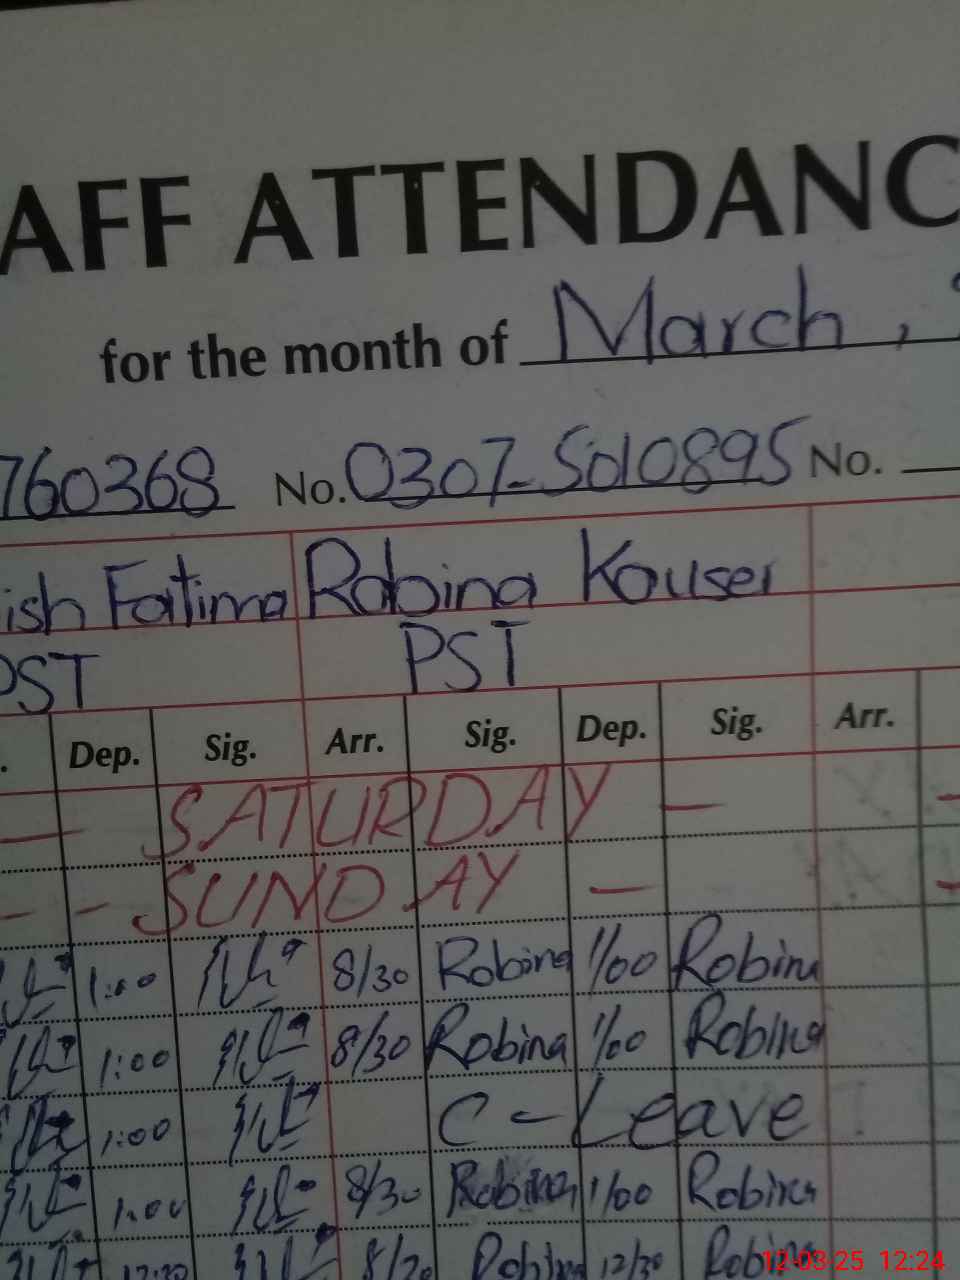 AFF ATTENDANC
for the month of March,
760368 No. 0307-5010895 No.
ish Fatima Robina Kouser
PST PST
Dep. Sig. Arr. Sig. Dep. Sig. Arr.
- - SATURDAY - -
- - SUNDAY - -
1:00 8/30 Robina 1/00 Robina
1:00 8/30 Robina 1/00 Robina
1:00 C-Leave
1:00 8/30 Robina 1/00 Robina
12:30 8/30 Robina 12/30 Robina
12-03-25 12:24